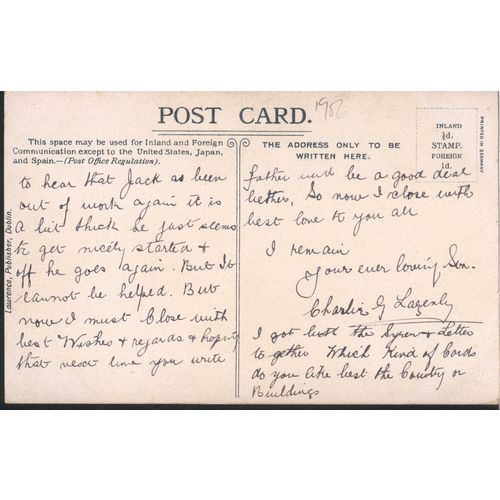 1906
POST CARD.
This space may be used for Inland and Foreign
Communication except to the United States, Japan,
and Spain.—(Post Office Regulation).
THE ADDRESS ONLY TO BE
WRITTEN HERE.
INLAND
½d.
STAMP.
FOREIGN
1d.
PRINTED IN GERMANY
Lawrence, Publisher, Dublin.
to hear that Jack as been
out of work again it is
A bit thick he just seems
to get nicely started &
off he goes again. But It
cannot be helped. But
now I must Close with
best Wishes & regards & hoping
that next time you write
father will be a good deal
better, So now I close with
best love to you all
I remain
Your ever loving Son.
Charlie G
I got both the & Letter
to gether Which Kind of Cards
do you like best the Country or
Buildings